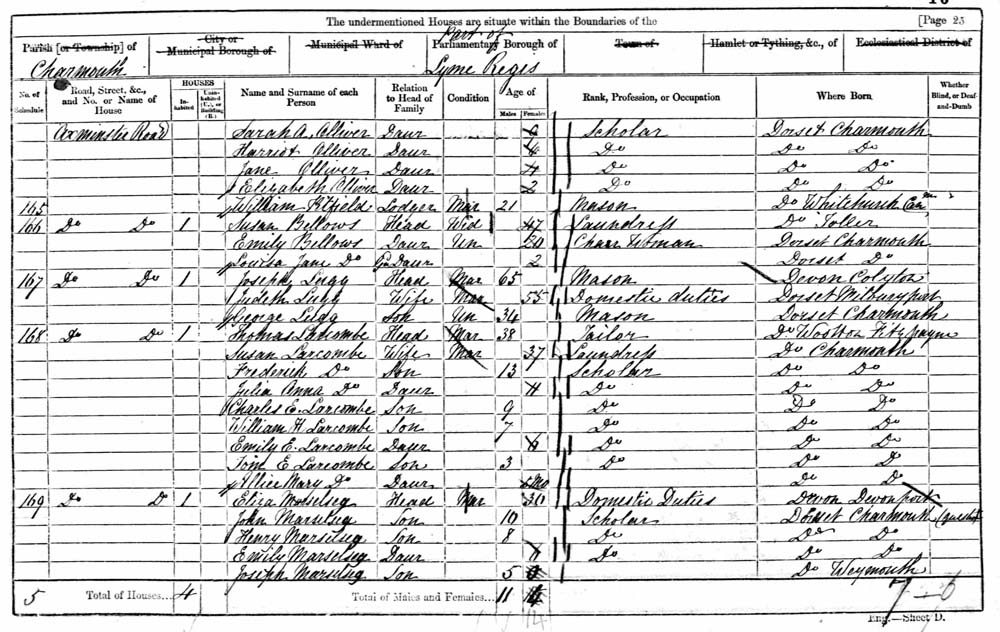 The undermentioned Houses are situate within the Boundaries of the [Page 25
Parish [or Township] of City or Municipal Borough of Municipal Ward of Part of Parliamentary Borough of Town of Hamlet or Tything, &c., of Ecclesiastical District of
Charmouth Lyme Regis
No. of Schedule Road, Street, &c., and No. or Name of House HOUSES Inhabited Uninhabited (U.), or Building (B.) Name and Surname of each Person Relation to Head of Family Condition Age of Males Females Rank, Profession, or Occupation Where Born Whether Blind, or Deaf-and-Dumb
Axminster Road Sarah A. Olliver Daur Scholar Dorset Charmouth
Harriot Olliver Daur Do Do Do
Jane Olliver Daur 4 Do Do Do
Elizabeth Olliver Daur 2 Do Do Do
165 William Lodger Mar 21 Mason Do Whitchurch
166 Do Do 1 Susan Bellows Head Wid 47 Laundress Do Toller
Emily Bellows Daur Un 20 Char Woman Dorset Charmouth
Louisa Jane Do Daur 2 Dorset Do
167 Do Do 1 Joseph Lugg Head Mar 65 Mason Devon Colyton
Judith Lugg Wife Mar 55 Domestic duties Dorset
George Lugg Son Un 34 Mason Dorset Charmouth
168 Do Do 1 Thomas Larcombe Head Mar 38 Tailor Do Wootton Fitzpayne
Susan Larcombe Wife Mar 37 Laundress Do Charmouth
Frederick Do Son 13 Scholar Do Do
Julia Anna Do Daur 11 Do Do Do
Charles E. Larcombe Son 9 Do Do Do
William H Larcombe Son 7 Do Do Do
Emily E. Larcombe Daur 6 Do Do Do
Tom E Larcombe Son 3 Do Do Do
Alice Mary Do Daur Do Do
169 Do Do 1 Eliza Marselseg Head Mar 30 Domestic Duties Devon Devonport
John Marselseg Son 10 Scholar Dorset Charmouth
Henry Marselseg Son 8 Do Do Do
Emily Marselseg Daur 6 Do Do Do
Joseph Marselseg Son 5 Do Weymouth
5 Total of Houses... 4 Total of Males and Females... 11 14
14
7-6
Eng.—Sheet D.